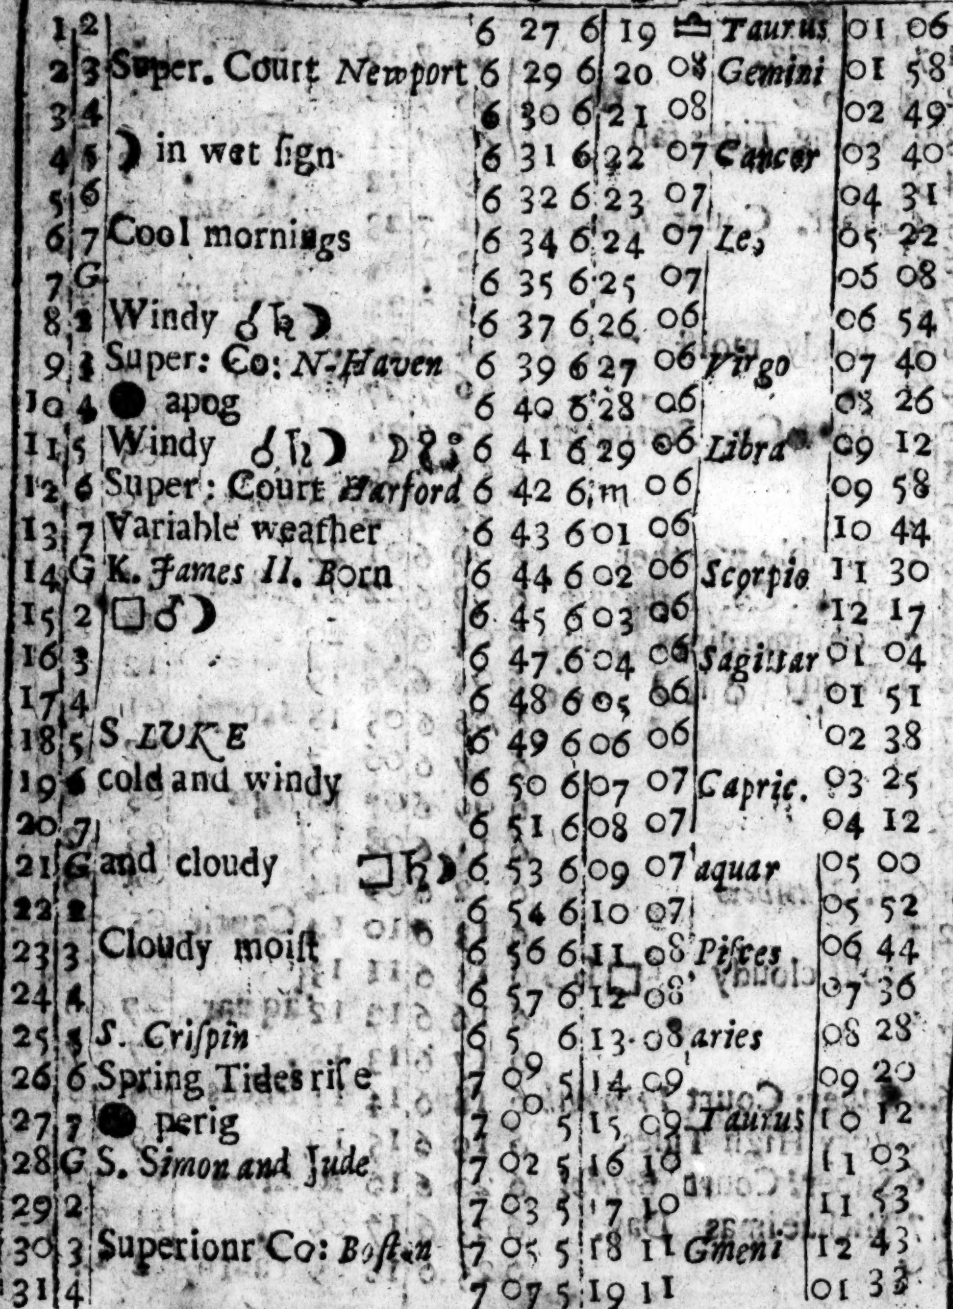 1 2 6 27 6 19 ♎ Taurus 01 06
2 3 Super. Court Newport 6 29 6 20 08 Gemini 01 58
3 4 6 30 6 21 08 02 49
4 5 ☽ in wet ſign 6 31 6 22 07 Cancer 03 40
5 6 6 32 6 23 07 04 31
6 7 Cool mornings 6 34 6 24 07 Leo 05 22
7 G 6 35 6 25 07 06 08
8 2 Windy ☌ ♄ ☽ 6 37 6 26 06 06 54
9 3 Super: Co: N-Haven 6 39 6 27 06 Virgo 07 40
10 4 ● apog 6 40 6 28 06 08 26
11 5 Windy ☌ ♄ ☽ 6 41 6 29 06 Libra 09 12
12 6 Super: Court Harford 6 42 6 m 06 09 58
13 7 Variable weather 6 43 6 01 06 10 44
14 G K. James II. Born 6 44 6 02 06 Scorpio 11 30
15 2 □ ♂ ☽ 6 45 6 03 06 12 17
16 3 6 47 6 04 06 Sagittar 01 04
17 4 6 48 6 05 06 01 51
18 5 S LUKE 6 49 6 06 06 02 38
19 6 cold and windy 6 50 6 07 07 Capric. 03 25
20 7 6 51 6 08 07 04 12
21 G and cloudy □ ♄ ☽ 6 53 6 09 07 aquar 05 00
22 2 6 54 6 10 07 05 52
23 3 Cloudy moiſt 6 56 6 11 08 Piſces 06 44
24 4 6 57 6 12 08 07 36
25 5 S. Criſpin 6 5 6 13 08 aries 08 28
26 6 Spring Tides riſe 7 09 5 14 09 09 20
27 7 ● perig 7 00 5 15 09 Taurus 10 12
28 G S. Simon and Jude 7 02 5 16 10 11 03
29 2 7 03 5 17 10 11 53
30 3 Superionr Co: Boſton 7 05 5 18 11 Gmeni 12 43
31 4 7 07 5 19 11 01 33